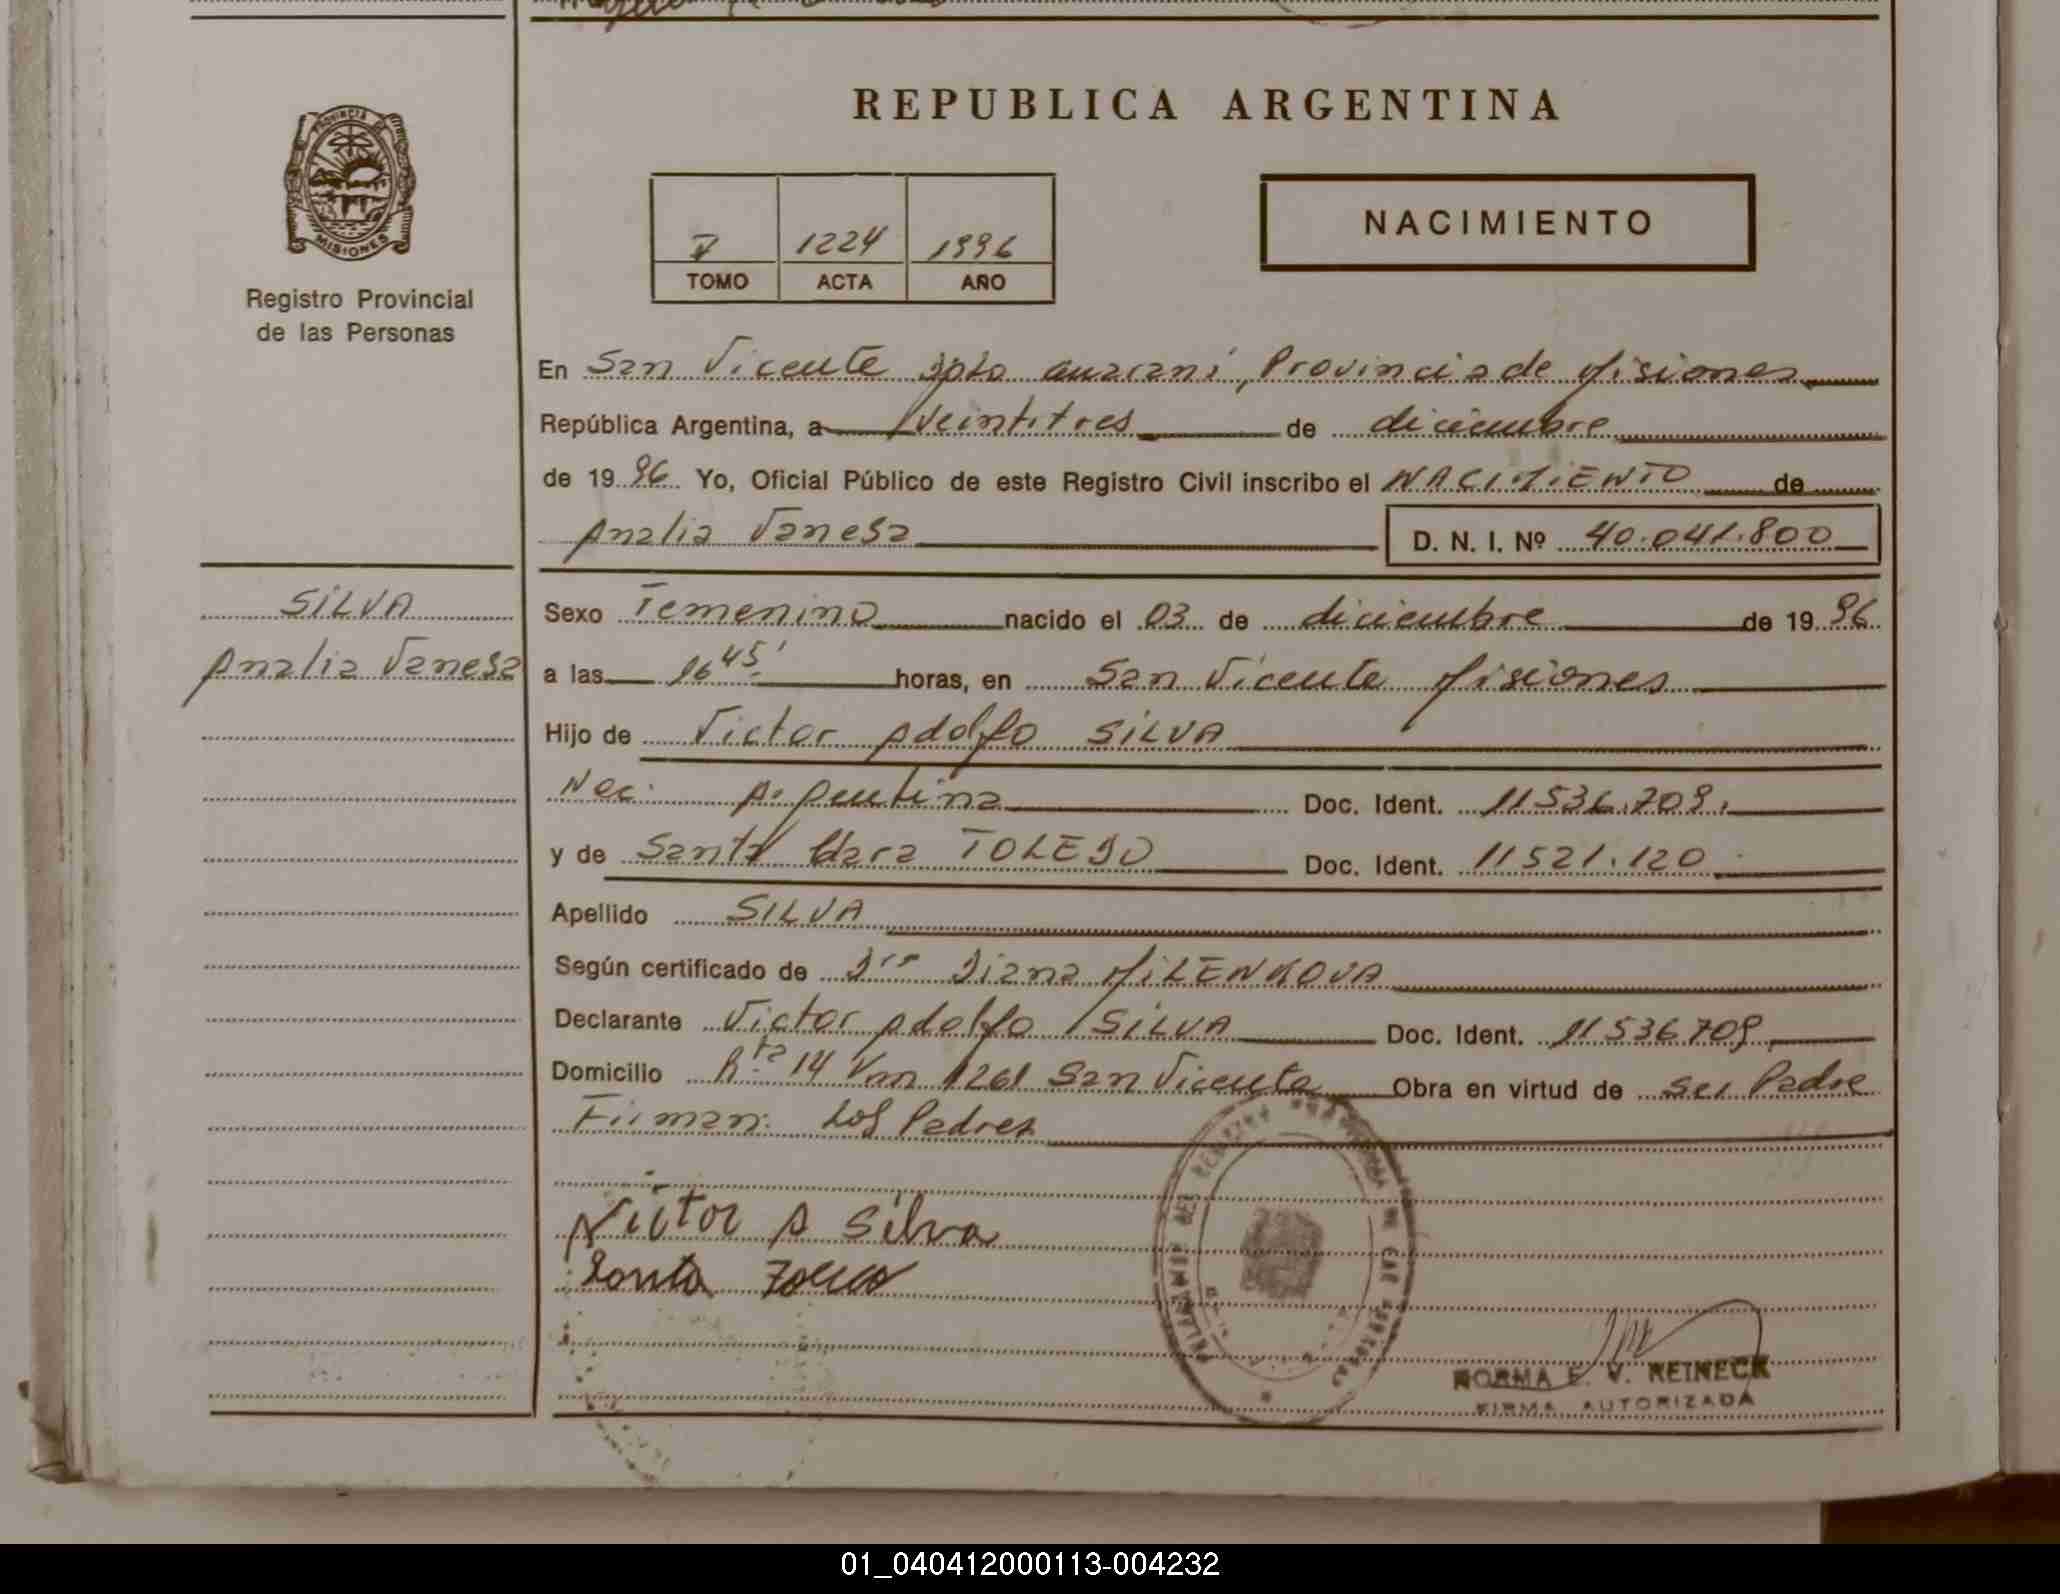 REPUBLICA ARGENTINA
PROVINCIA DE
MISIONES
Registro Provincial
de las Personas
V 1224 1996
TOMO ACTA AÑO
NACIMIENTO
En San Vicente Dpto Guaraní, Provincia de Misiones
República Argentina, a Veintitres de diciembre
de 19 96 Yo, Oficial Público de este Registro Civil inscribo el NACIMIENTO de
Analia Vanesa D. N. I. Nº 40.041.800
SILVA
Analia Vanesa
Sexo Femenino nacido el 03 de diciembre de 19 96
a las 16 45' horas, en San Vicente Misiones
Hijo de Victor Adolfo SILVA
Nac. Argentina Doc. Ident. 11536.709.
y de Santa Clara TOLEDO Doc. Ident. 11521.120
Apellido SILVA
Según certificado de Dra Diana MILENKOVA
Declarante Victor Adolfo SILVA Doc. Ident. 11536709
Domicilio Rta 14 Km 1261 San Vicente Obra en virtud de ser Padre
Firman: Los Padres
Victor A Silva
Santa Toledo
NORMA E. V. REINECK
FIRMA AUTORIZADA
01_040412000113-004232